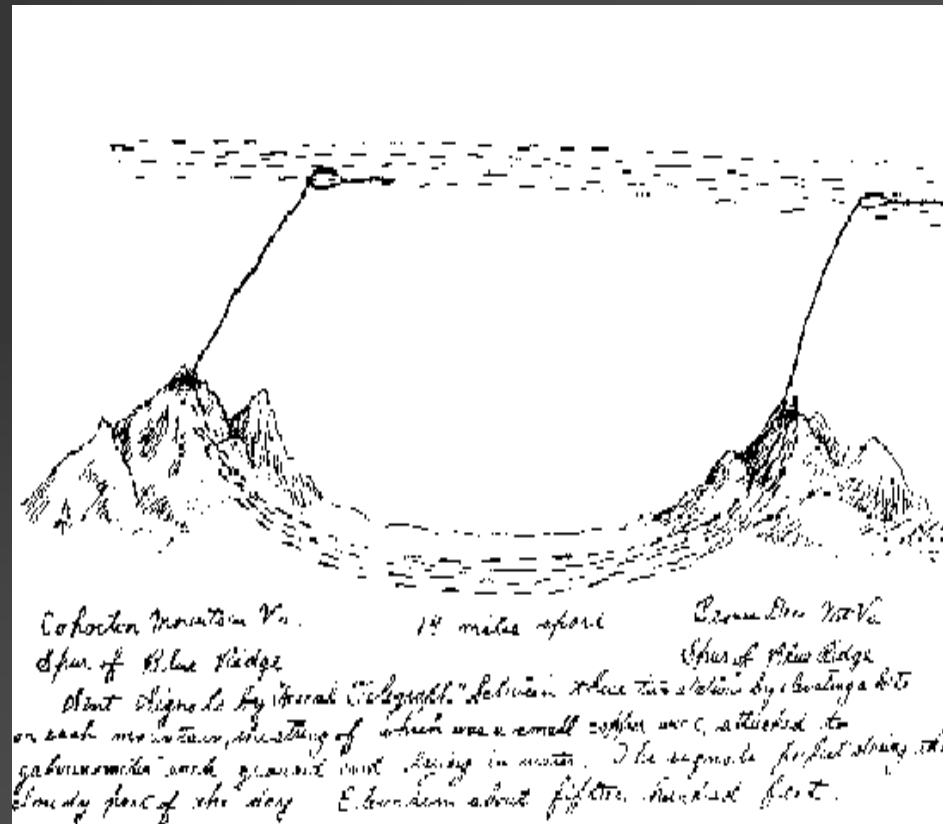 Cohoctin Mountain Va. 14 miles apart Va
Spur of Blue Ridge Spur of Blue Ridge
Sent signals by Aerial Telegraph between these two stations by elevating a kite
on each mountain, the string of which was a small copper wire, attached to
galvanometer each ground end laying in water. The signals perfect during the
cloudy part of the day Elevation about fifteen hundred feet.